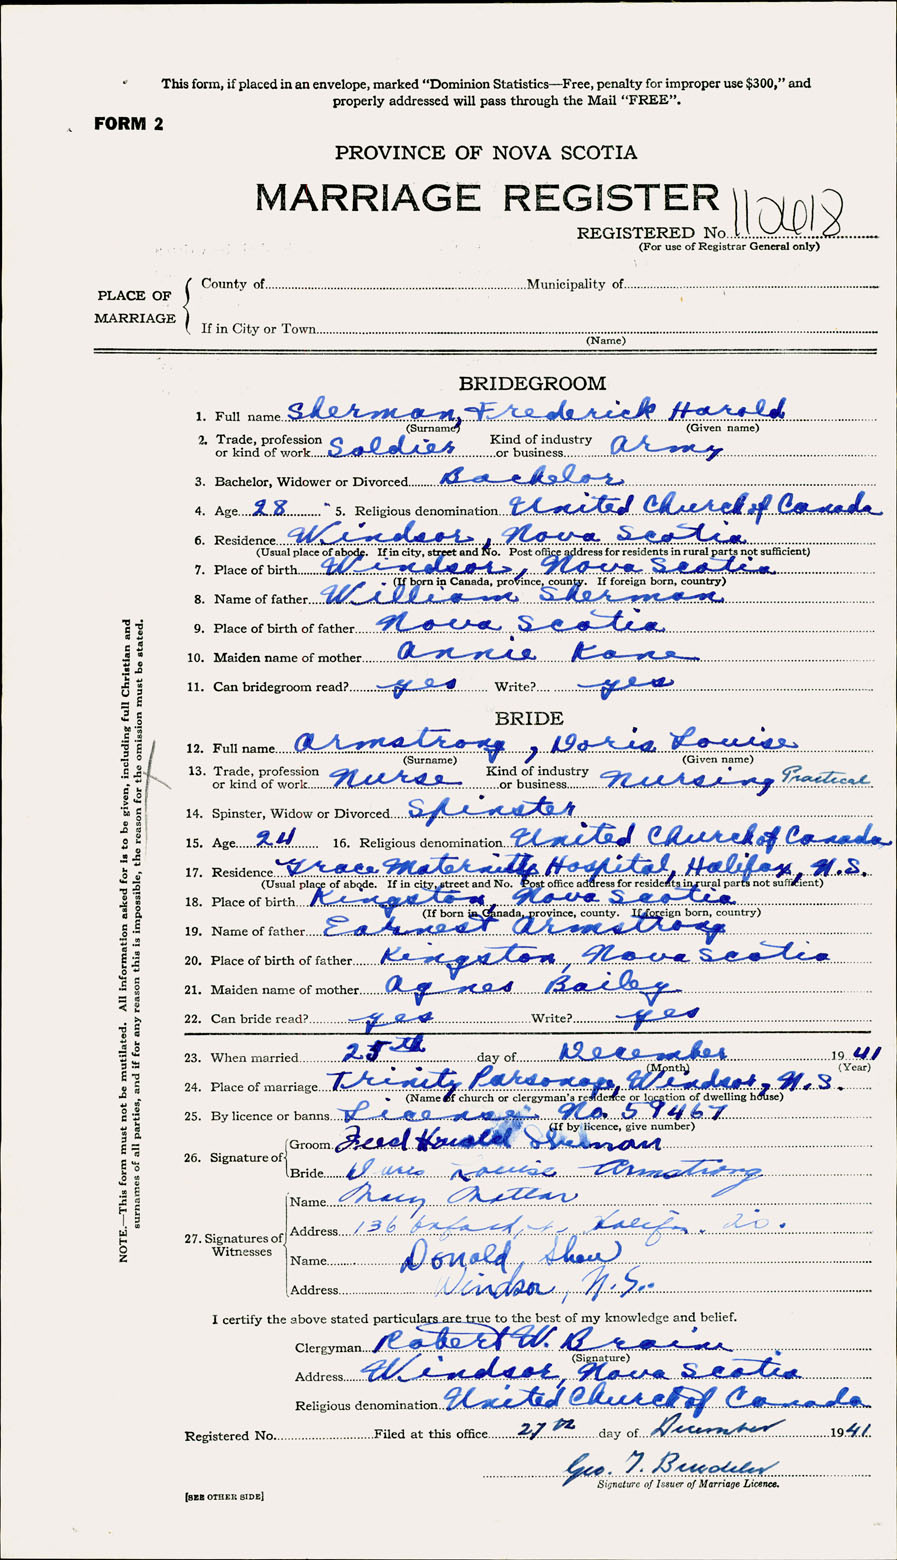 This form, if placed in an envelope, marked “Dominion Statistics—Free, penalty for improper use $300,” and
properly addressed will pass through the Mail “FREE”.
FORM 2
PROVINCE OF NOVA SCOTIA
MARRIAGE REGISTER
REGISTERED No.
(For use of Registrar General only)
PLACE OF MARRIAGE
County of Municipality of
If in City or Town
(Name)
BRIDEGROOM
1. Full name Sherman, Frederick Harold
(Surname) (Given name)
2. Trade, profession or kind of work Soldier Kind of industry or business Army
3. Bachelor, Widower or Divorced Bachelor
4. Age 28 5. Religious denomination United Church of Canada
6. Residence Windsor, Nova Scotia
(Usual place of abode. If in city, street and No. Post office address for residents in rural parts not sufficient)
7. Place of birth Windsor, Nova Scotia
(If born in Canada, province, county. If foreign born, country)
8. Name of father William Sherman
9. Place of birth of father Nova Scotia
10. Maiden name of mother Annie Kane
11. Can bridegroom read? yes Write? yes
BRIDE
12. Full name Armstrong, Doris Louise
(Surname) (Given name)
13. Trade, profession or kind of work Nurse Kind of industry or business Nursing Practical
14. Spinster, Widow or Divorced Spinster
15. Age 24 16. Religious denomination United Church of Canada
17. Residence Grace Maternity Hospital, Halifax, N.S.
(Usual place of abode. If in city, street and No. Post office address for residents in rural parts not sufficient)
18. Place of birth Kingston, Nova Scotia
(If born in Canada, province, county. If foreign born, country)
19. Name of father Earnest Armstrong
20. Place of birth of father Kingston, Nova Scotia
21. Maiden name of mother Agnes Bailey
22. Can bride read? yes Write? yes
23. When married 25th day of December 1941
(Month) (Year)
24. Place of marriage Trinity Parsonage, Windsor, N.S.
(Name of church or clergyman's residence or location of dwelling house)
25. By licence or banns License No. 59467
(If by licence, give number)
26. Signature of Groom Fred Harold Sherman
Bride Doris Louise Armstrong
27. Signatures of Witnesses
Name Mary
Address 136 Halifax
Name Donald Shaw
Address Windsor, N.S.
I certify the above stated particulars are true to the best of my knowledge and belief.
Clergyman Robert W. Brain
(Signature)
Address Windsor, Nova Scotia
Religious denomination United Church of Canada
Registered No. Filed at this office 27th day of December 1941
Geo. T.
Signature of Issuer of Marriage Licence.
[SEE OTHER SIDE]
NOTE.—This form must not be mutilated. All information asked for is to be given, including full Christian and
surnames of all parties, and if for any reason this is impossible, the reason for the omission must be stated.